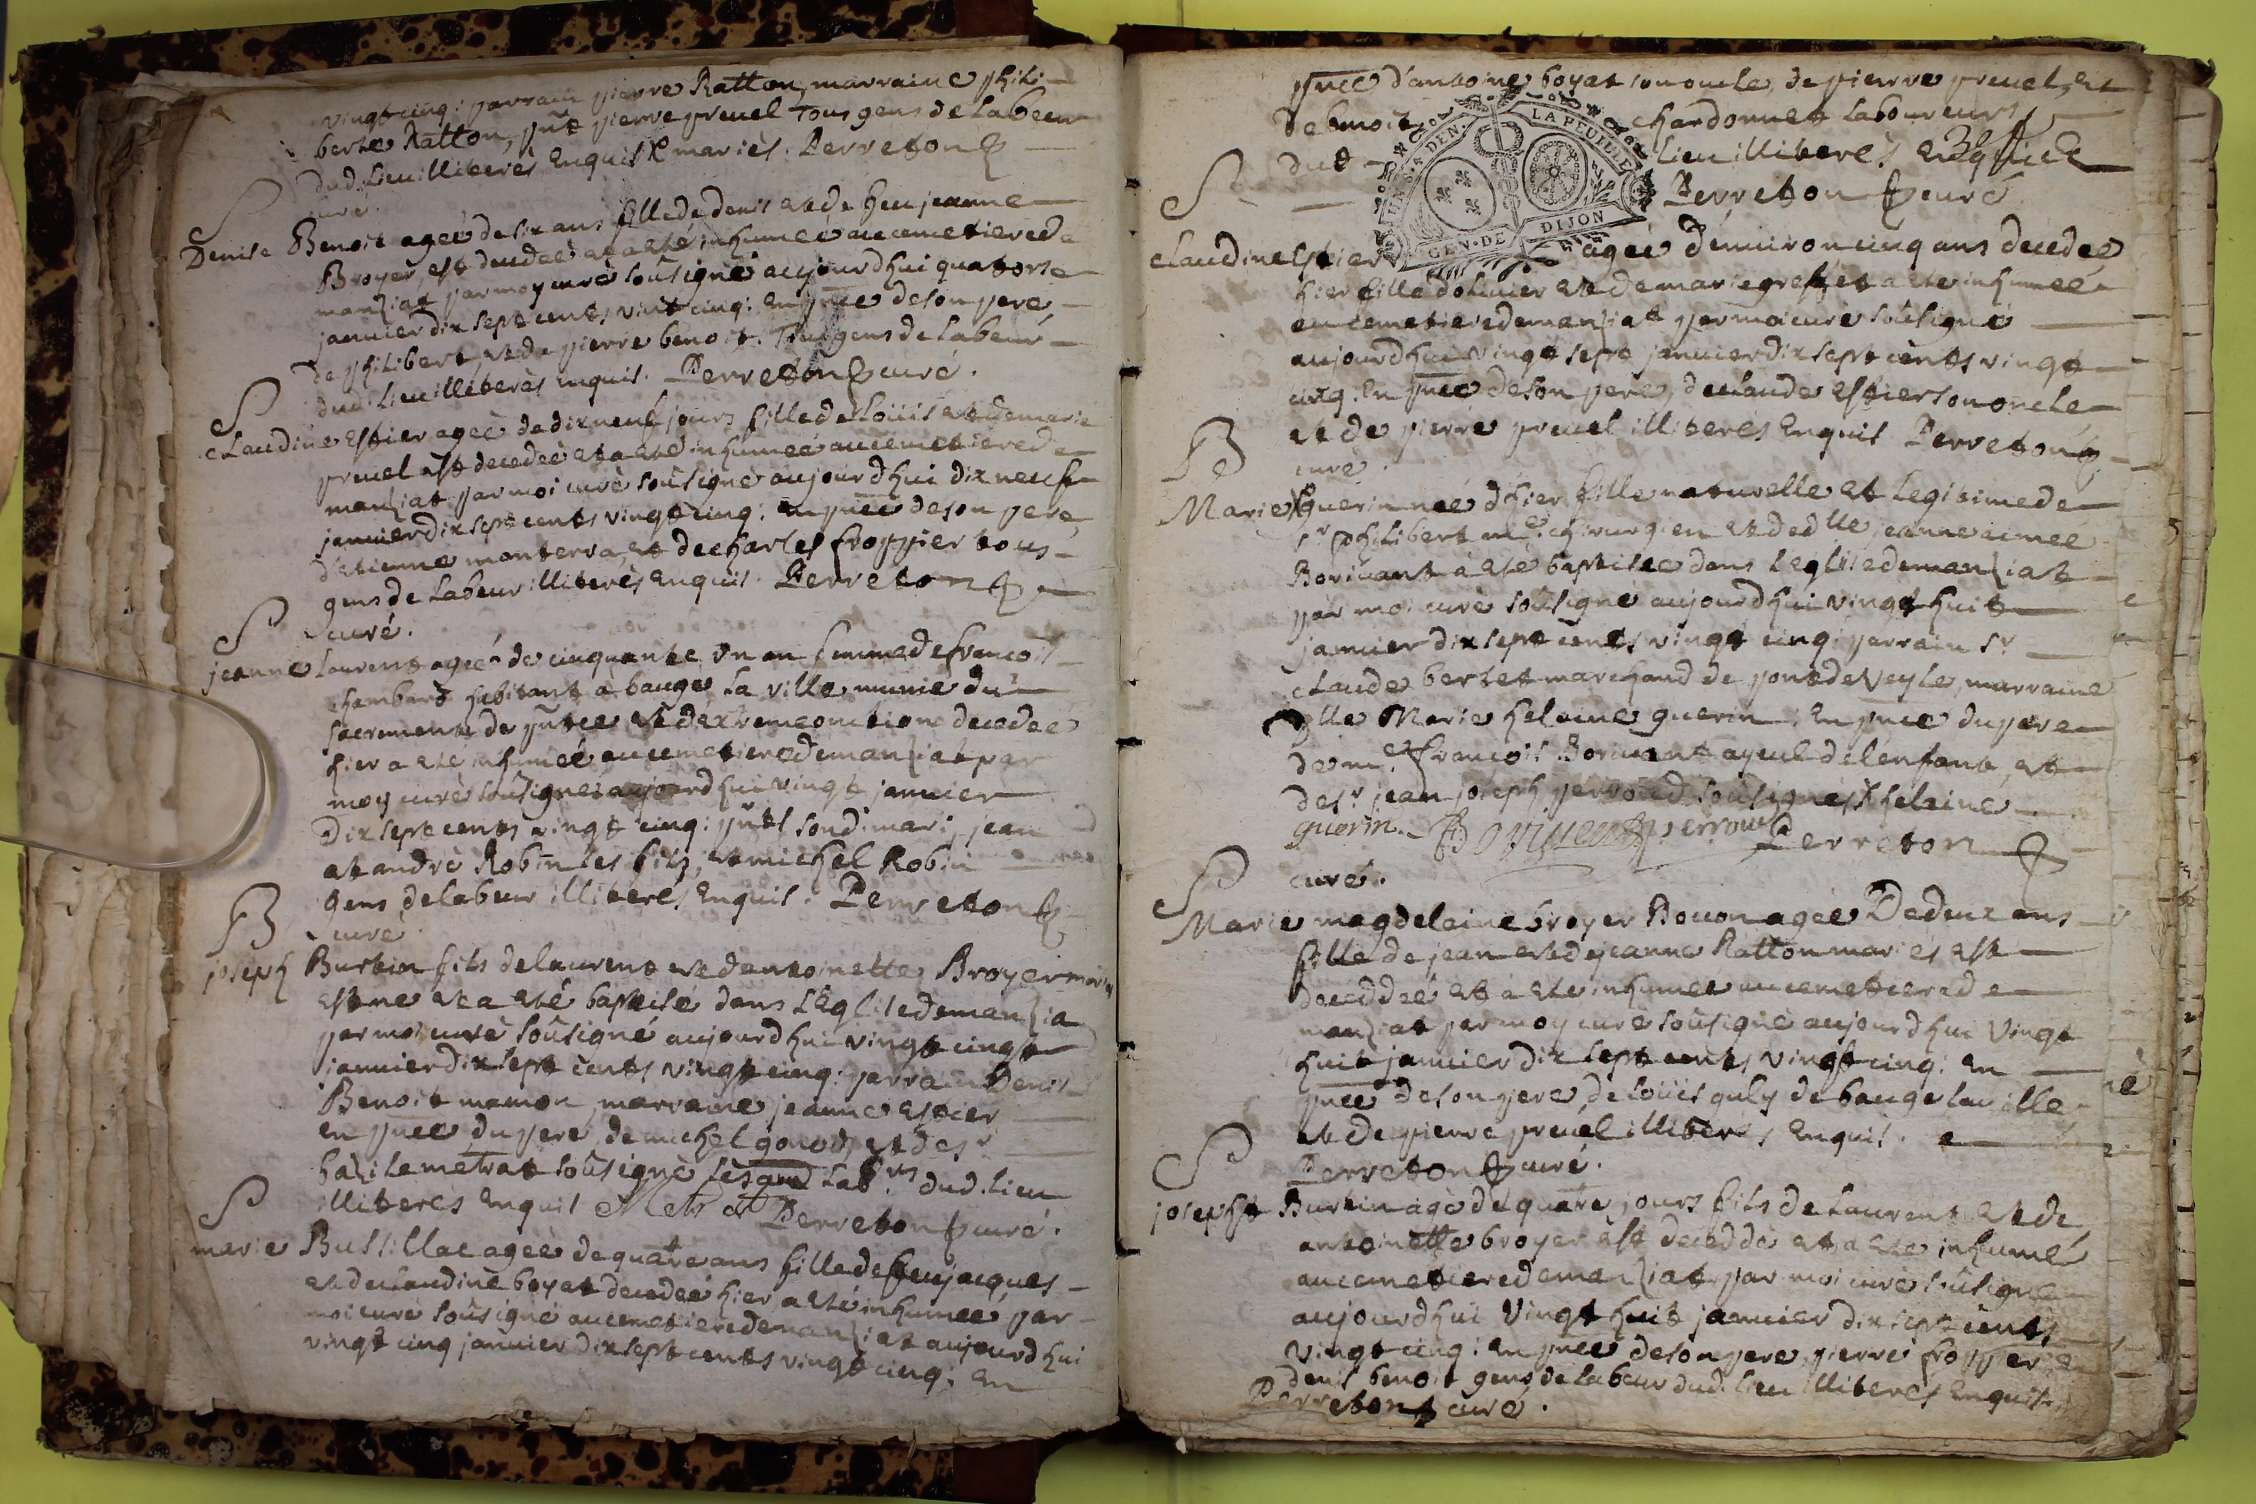 vingt cinq: parrain pierre Ratton, marraine phili-
berte Ratton, pñt pierre preuel Tous gens de labeur
dud. lieu illiterés Enquis X mariés. Perreton
curé.
S
Denise Benoit ageé de six ans fille de denis et de feu jeanne
Broyer, est decedeé et a eté inhumeé au cemetiere de
manziat par moy curé soûsigné aujourdhui quatorze
janvier dix sept cents vint cinq: En pñce de son pere,
de philibert, et de pierre benoit. Tous gens de labeur
dud. lieu illiterés enquis. Perreton curé.
S
Claudine Estier ageé de dix neuf jours fille de Loüis et de marie
preuel est decedeé et a eté inhumeé au cemetiere de
manziat par moi curé soûsigné aujourdhui dix neuf
janvier dix sept cents vingt cinq: en pñce de son pere
d'etienne monterra, et de charles froppier tous
gens de labeur illiterés enquis. Perreton
curé.
S
jeanne Laurent ageé de cinquante un an femme de françois
chambard habitant à bauge la ville munie du
sacrement de pñtce et d'extremeonction decedeé
hier a eté inhumeé au cemetiere de manziat par
moy curé soûsigné aujourdhui vingt janvier
Dix sept cents vingt cinq: pñts sond. mari, jean
et andré Robin ses fils, et michel Robin
Gens de labeur illiterés Enquis. Perreton
curé.
B
joseph Burtin fils de laurent et dantoinette Broyer mariés
est né et a eté baptisé dans l'Eglise de manzia
par moi curé soûsigné aujourdhui vingt cinq
janvier dix sept cents vingt cinq: parrain Denis
Benoit mamon, marraine jeanne Estier
en pñce du pere, de michel gonod, et de sr
bazile metrat soûsigné Lab.rs dud. lieu
illiterés Enquis Metrat Perreton curé.
S
marie Bussillat ageé de quatre ans fille de feu jacques
et de claudine boyat decedeé hier, a eté inhumeé par
moi curé soûsigné au cemetiere de manziat aujourdhui
vingt cinq janvier dix sept cents vingt cinq: En
pñce d'antoine boyat son oncle, de pierre preuel, et
de benoit chardonnet laboureurs
dud lieu illiterés Enquis
Perreton curé.
GEN. DE DIJON
LA FEUILLE
S
Claudine Estier ageé d'environ cinq ans decedeé
hier fille dolivier et de marie greffet a eté inhumeé
au cemetiere de manziat par moi curé soûsigné
aujourdhui vingt sept janvier dix sept cents vingt
cinq. En pñce de son pere, de claude Estier son oncle
et de pierre preuel illiterés Enquis Perreton
curé.
B
Marie X guerin neé d'hier fille naturelle et legitime de
sr philibert me. chirurgien et de dlle jeanne aimeé
Borivant a eté baptiseé dans leglise de manziat
par moi curé soûsigné aujourdhui vingt huit
janvier dix sept cents vingt cinq: parrain sr
Claude bertet marchand de pont de Veyle, marraine
dlle Marie helaine guerin: En pñce du pere
de me françois Borivent ayeul de lenfant, et
de sr jean joseph perroud soûsignés X helaine
guerin. Borivent perroud Perreton
curé.
S
Marie magdelaine broyer Bouon ageé De deux ans
fille de jean et de jeanne Ratton mariés est
deceddeé et a eté inhumeé au cemetiere de
manziat par moy curé soûsigné aujourdhui Vingt
huit janvier dix sept cents vingt cinq: En
pñce de son pere, de Loüis guly de bauge la ville
et de pierre preuel illiterés Enquis.
Perreton curé.
S
joseph Burtin agé de quatre jours fils de Laurent et de
antoinette broyer est deceddé et a eté inhumé
au cemetiere de manziat par moi curé soûsigné
aujourdhui Vingt huit janvier dix sept cents
vingt cinq: En pñce de son pere, pierre froppier
denis benoit gens de labeur dud. lieu illiterés enquis.
Perreton curé.